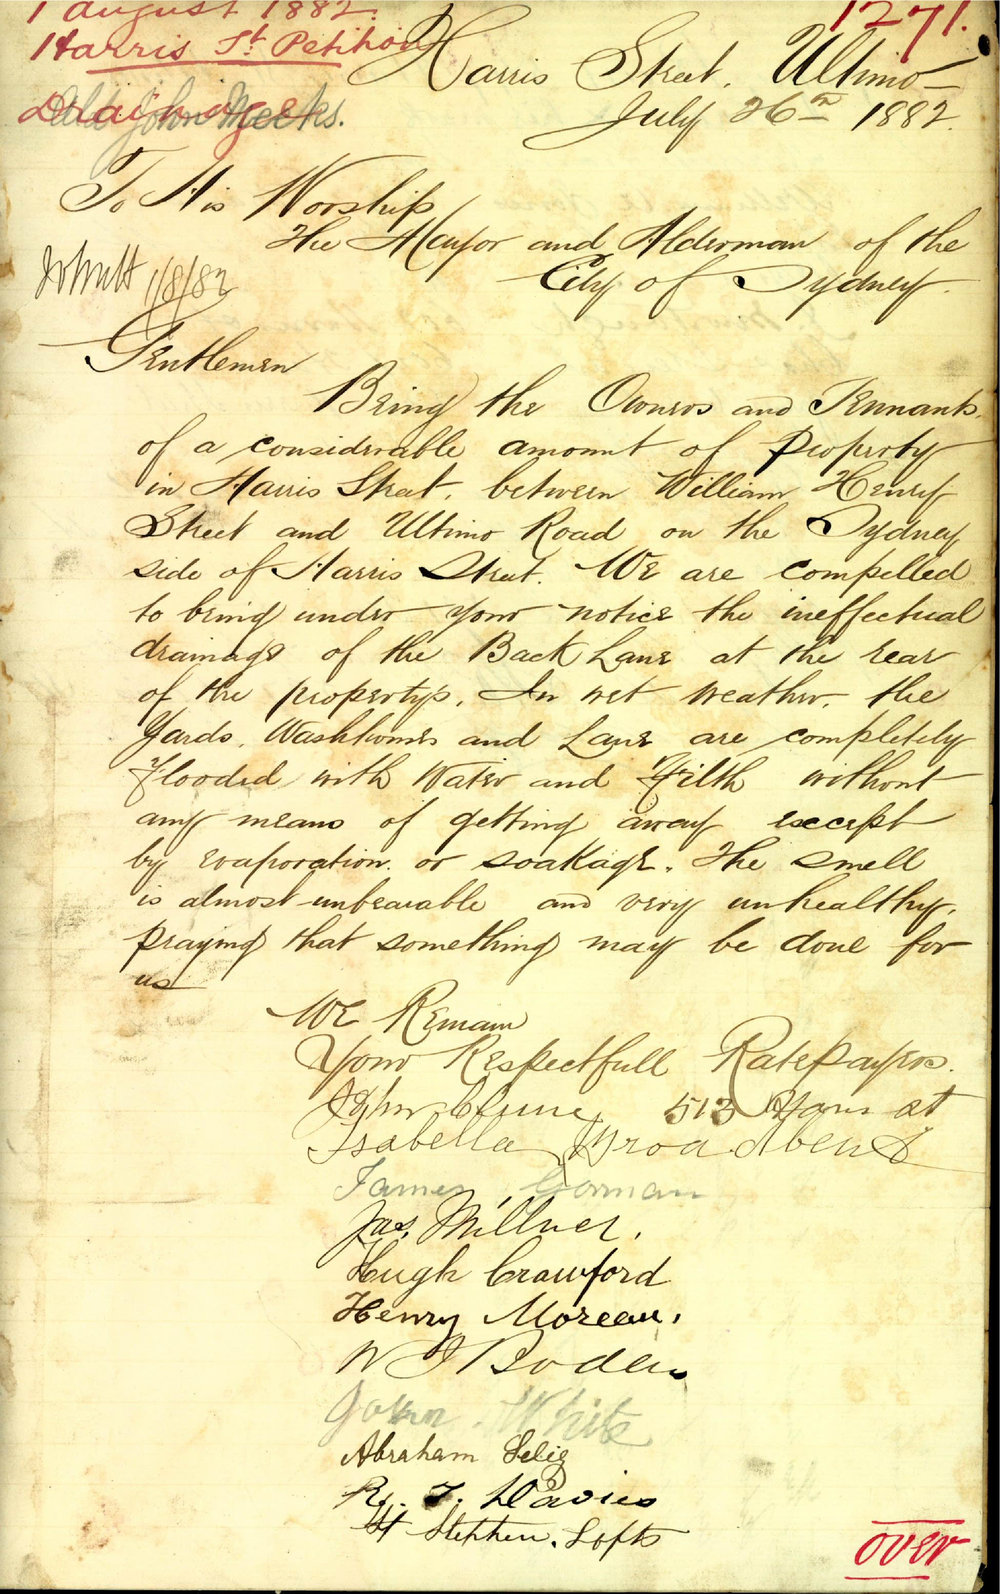 1 august 1882.
1271.
Harris St Petition
Drainage
Ald John Meeks.
Harris Street. Ultimo
July 26th 1882.
To His Worship
The Mayor and Alderman of the
City of Sydney.
1/8/82
Gentlemen
Being the Owners and Tennants
of a considerable amount of property
in Harris Street. between William Henry
Street and Ultimo Road on the Sydney
side of Harris Street. We are compelled
to bring under your notice the ineffectual
drainage of the Back Lane at the rear
of the propertys. In wet weather, the
Yards, Washhouses and Lane are completely
flooded with Water and Filth without
any means of getting away except
by evaporation or soakage. The smell
is almost unbearable and very unhealthy.
praying that something may be done for
us
We Remain
Your Respectfull Ratepayers.
John Clune 513
Isabella Broadbent
James Gorman
Jas. Millner.
Hugh Crawford
Henry Moreau.
W J Boden
John White
Abraham Selig
R. T. Davies
St Stephen. Lofts
over